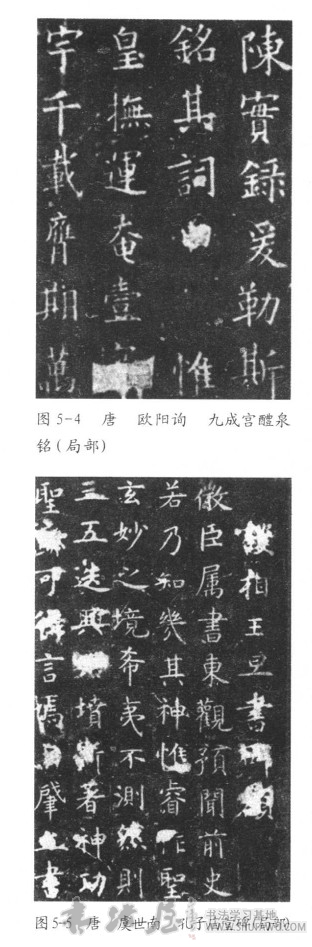 陳實録爰勒斯
銘其詞 惟
皇撫運奄壹
宇千載膺期萬
图 5-4 唐 欧阳询 九成宫醴泉
铭(局部)
護相王旦書碑額
微臣属書東觀預聞前史
若乃知幾其神惟睿作聖
玄妙之境希夷不測然則
三五迭興 墳斯著神功
聖 可得言焉 肇立書
图 5-5 唐 虞世南 孔子庙堂碑(局部)
书法学习基地